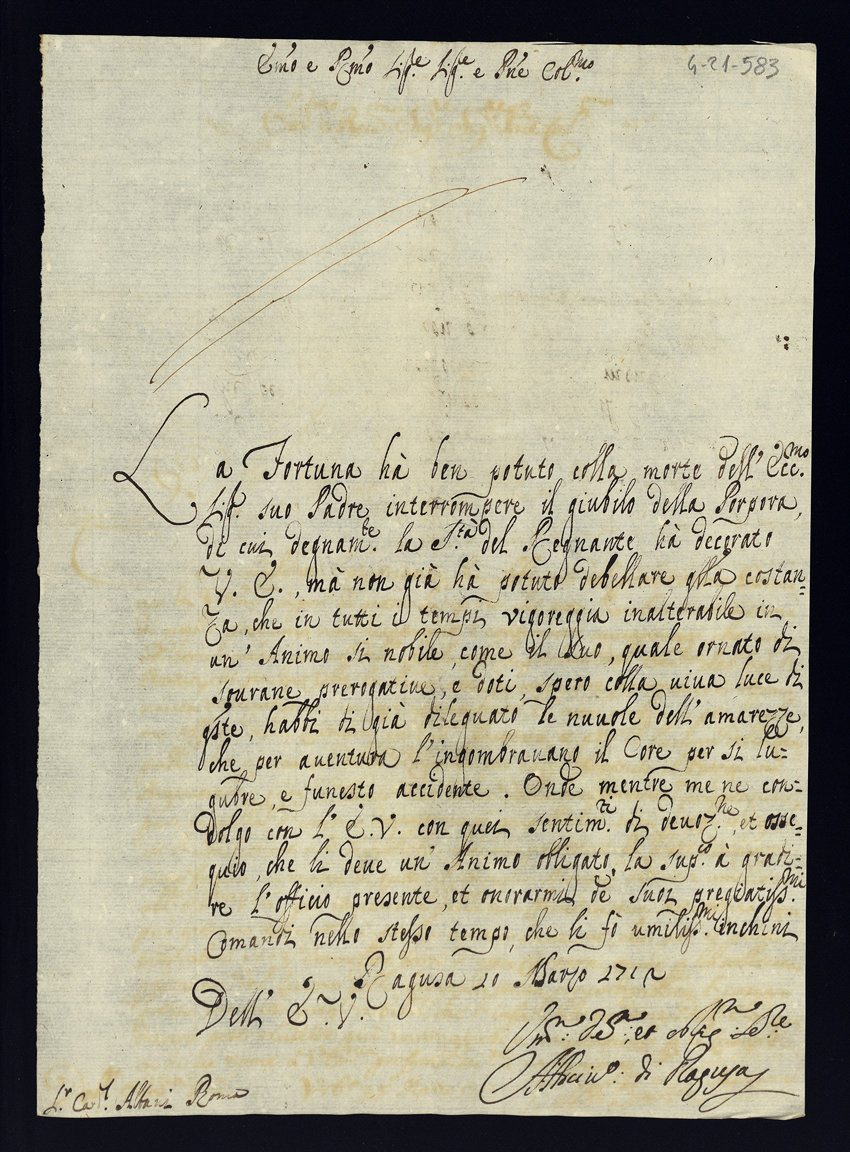 Emo e Rmo Sig.re Sig.re e Pne Col.mo
4-21-583
La Fortuna hà ben potuto colla morte dell' Ecc.mo
Sig.r suo Padre interrompere il giubilo della Porpora,
di cui degnam.te la S.tà del Regnante hà decorato
V. E., mà non già hà potuto debellare qlla costan=
za, che in tutti i tempi vigoreggia inalterabile in
un' Animo si nobile, come il Suo, quale ornato di
sourane prerogatiue, e doti, spero colla uiua luce di
qste, habbi di già dileguato le nuuole dell' amarezze,
che per auentura l'ingombrauano il Core per si lu=
gubre, e funesto accidente. Onde mentre me ne con=
dolgo con l' E.V. con quei sentim.ti di deuoz.ne, et osse=
quio, che li deve un' Animo obligato, la sup.co à gradi=
re l'officio presente, et onorarmi de suoi pregiatiss.mi
Comandi nello stesso tempo, che li fò umiliss.mi inchini
Ragusa 10 Marzo 1712
Dell' E. V.
et oblig.
Arciu.o di Ragusa
S.r Ca.l Albani Roma